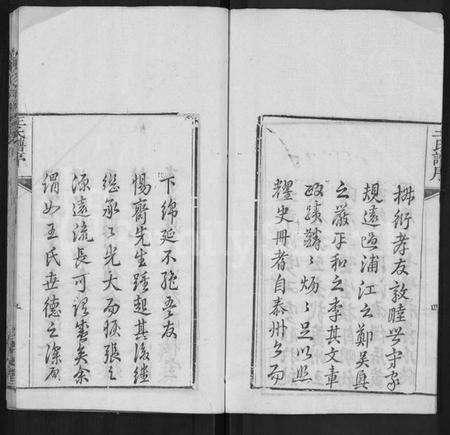 王氏譜序
四
椒衍孝友敦睦世守家
規遠過浦江之鄭吳興
之嚴平和之李其文章
政蹟鱗々炳々足以照
耀史冊者自泰州公而
下綿延不絕吾友
惕齋先生踵起其後繼
繼承々光大而張之
源遠流長可謂盛矣余
王氏世德之深厚
王氏譜序